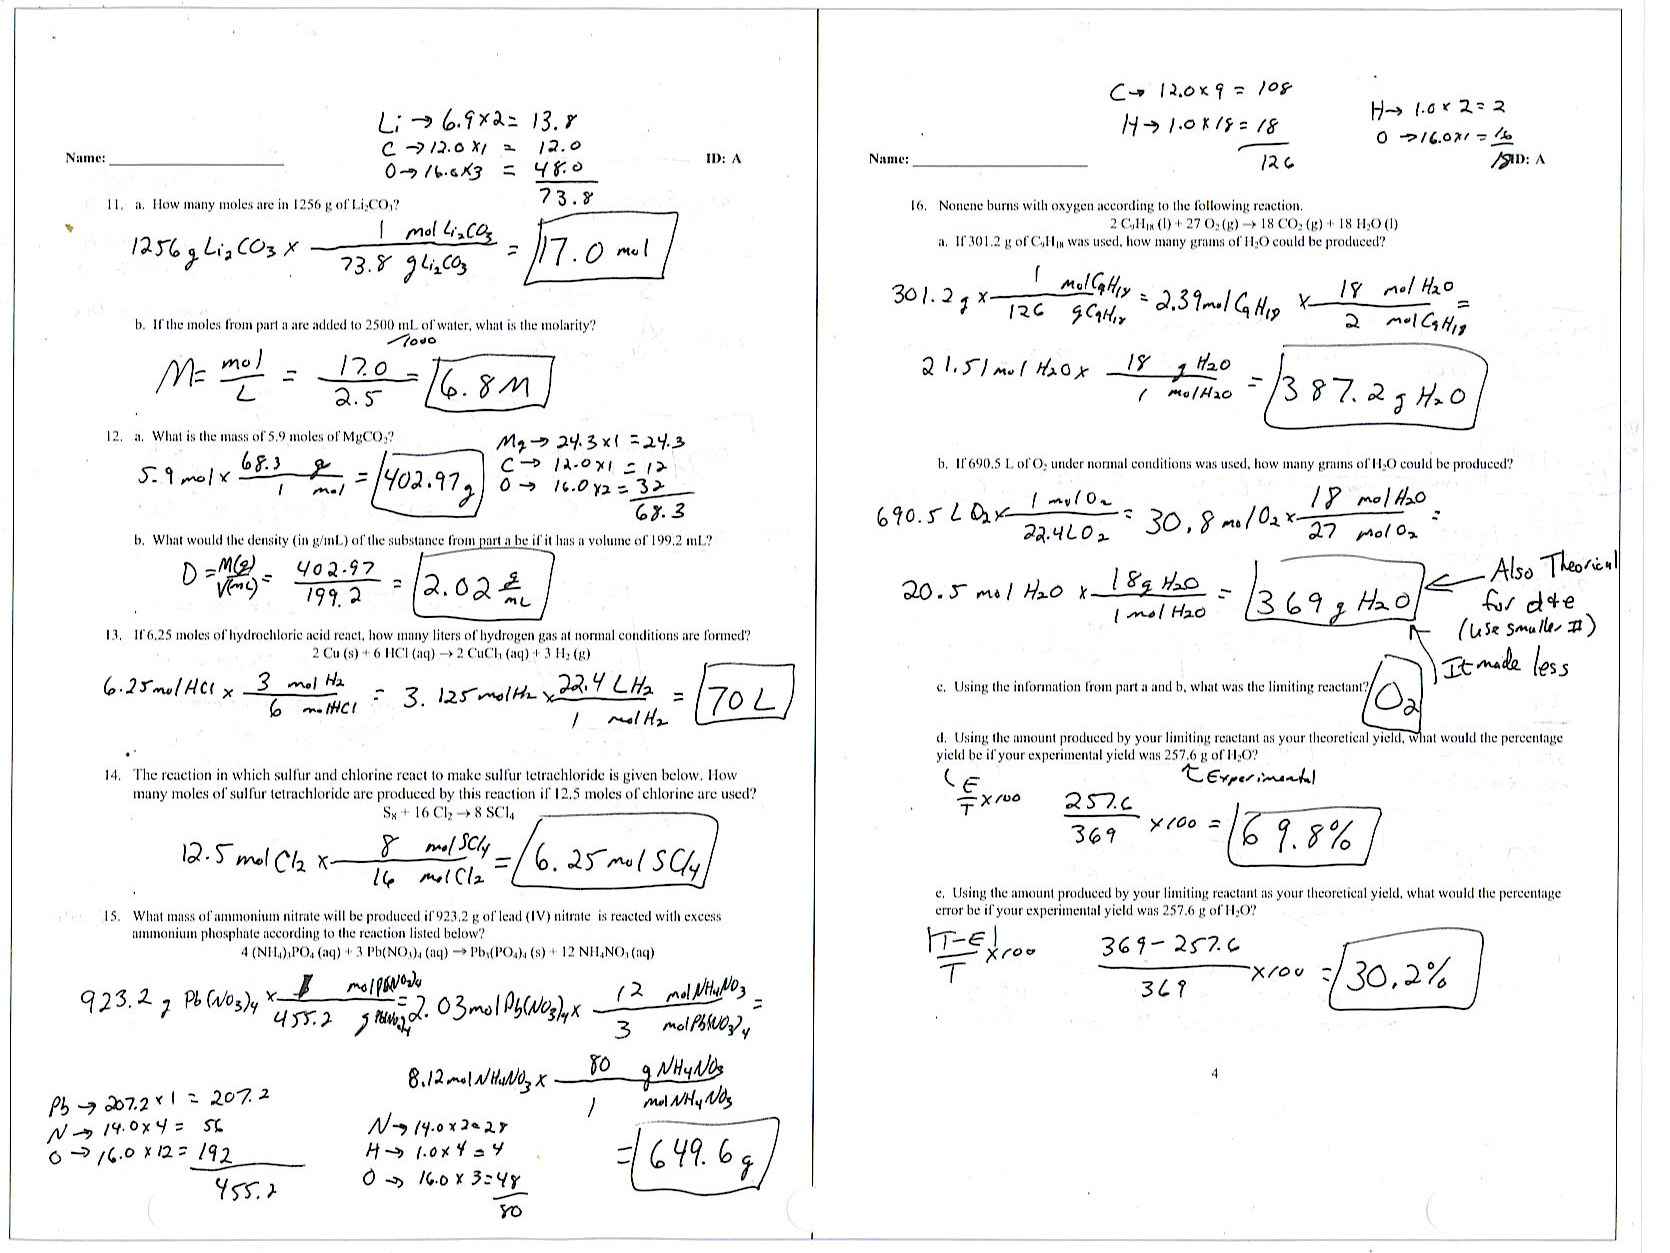 Li → 6.9x2= 13.8
C →12.0 x1 = 12.0
O→16.0x3 = 48.0
73.8
Name:
ID: A
11. a. How many moles are in 1256 g of Li₂CO₃?
1256 g Li₂CO₃ x 1 mol Li₂CO₃ / 73.8 g Li₂CO₃ = 17.0 mol
b. If the moles from part a are added to 2500 mL of water, what is the molarity?
/1000
M= mol / L = 17.0 / 2.5 = 6.8 M
12. a. What is the mass of 5.9 moles of MgCO₂?
Mg → 24.3x1 =24.3
C → 12.0x1 = 12
O → 16.0x2 = 32
68.3
5.9 mol x 68.3 g / 1 mol = 402.97g
b. What would the density (in g/mL) of the substance from part a be if it has a volume of 199.2 mL?
D = M(g) / V(mL) = 402.97 / 199.2 = 2.02 g/mL
13. If 6.25 moles of hydrochloric acid react, how many liters of hydrogen gas at normal conditions are formed?
2 Cu (s) + 6 HCl (aq) → 2 CuCl₃ (aq) + 3 H₂ (g)
6.25 mol HCl x 3 mol H₂ / 6 mol HCl = 3.125 mol H₂ x 22.4 L H₂ / 1 mol H₂ = 70 L
14. The reaction in which sulfur and chlorine react to make sulfur tetrachloride is given below. How
many moles of sulfur tetrachloride are produced by this reaction if 12.5 moles of chlorine are used?
S₈ + 16 Cl₂ → 8 SCl₄
12.5 mol Cl₂ x 8 mol SCl₄ / 16 mol Cl₂ = 6.25 mol SCl₄
15. What mass of ammonium nitrate will be produced if 923.2 g of lead (IV) nitrate is reacted with excess
ammonium phosphate according to the reaction listed below?
4 (NH₄)₃PO₄ (aq) + 3 Pb(NO₃)₄ (aq) → Pb₃(PO₄)₄ (s) + 12 NH₄NO₃ (aq)
923.2 g Pb(NO₃)₄ x 1 mol Pb(NO₃)₄ / 455.2 g Pb(NO₃)₄ = 2.03 mol Pb(NO₃)₄ x 12 mol NH₄NO₃ / 3 mol Pb(NO₃)₄ =
8.12 mol NH₄NO₃ x 80 g NH₄NO₃ / 1 mol NH₄NO₃
= 649.6 g
Pb → 207.2 x 1 = 207.2
N → 14.0 x 4 = 56
O → 16.0 x 12 = 192
455.2
N → 14.0 x 2 = 28
H → 1.0 x 4 = 4
O → 16.0 x 3 = 48
80
C → 12.0 x 9 = 108
H → 1.0 x 18 = 18
126
H → 1.0 x 2 = 2
O → 16.0x1 = 16
18
Name:
ID: A
16. Nonene burns with oxygen according to the following reaction.
2 C₉H₁₈ (l) + 27 O₂ (g) → 18 CO₂ (g) + 18 H₂O (l)
a. If 301.2 g of C₉H₁₈ was used, how many grams of H₂O could be produced?
301.2 g x 1 mol C₉H₁₈ / 126 g C₉H₁₈ = 2.39 mol C₉H₁₈ x 18 mol H₂O / 2 mol C₉H₁₈ =
21.51 mol H₂O x 18 g H₂O / 1 mol H₂O = 387.2 g H₂O
b. If 690.5 L of O₂ under normal conditions was used, how many grams of H₂O could be produced?
690.5 L O₂ x 1 mol O₂ / 22.4 L O₂ = 30.8 mol O₂ x 18 mol H₂O / 27 mol O₂ =
20.5 mol H₂O x 18g H₂O / 1 mol H₂O = 369 g H₂O
Also Theorical
for d+e
(use smaller #)
It made less
c. Using the information from part a and b, what was the limiting reactant? O₂
d. Using the amount produced by your limiting reactant as your theoretical yield, what would the percentage
yield be if your experimental yield was 257.6 g of H₂O?
Experimental
E / T x100
257.6 / 369 x100 = 69.8%
e. Using the amount produced by your limiting reactant as your theoretical yield, what would the percentage
error be if your experimental yield was 257.6 g of H₂O?
|T-E| / T x100
369-257.6 / 369 x100 = 30.2%
4